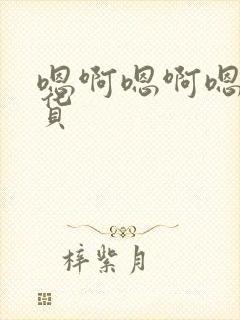 嗯啊嗯啊嗯
花
贝
梓紫月